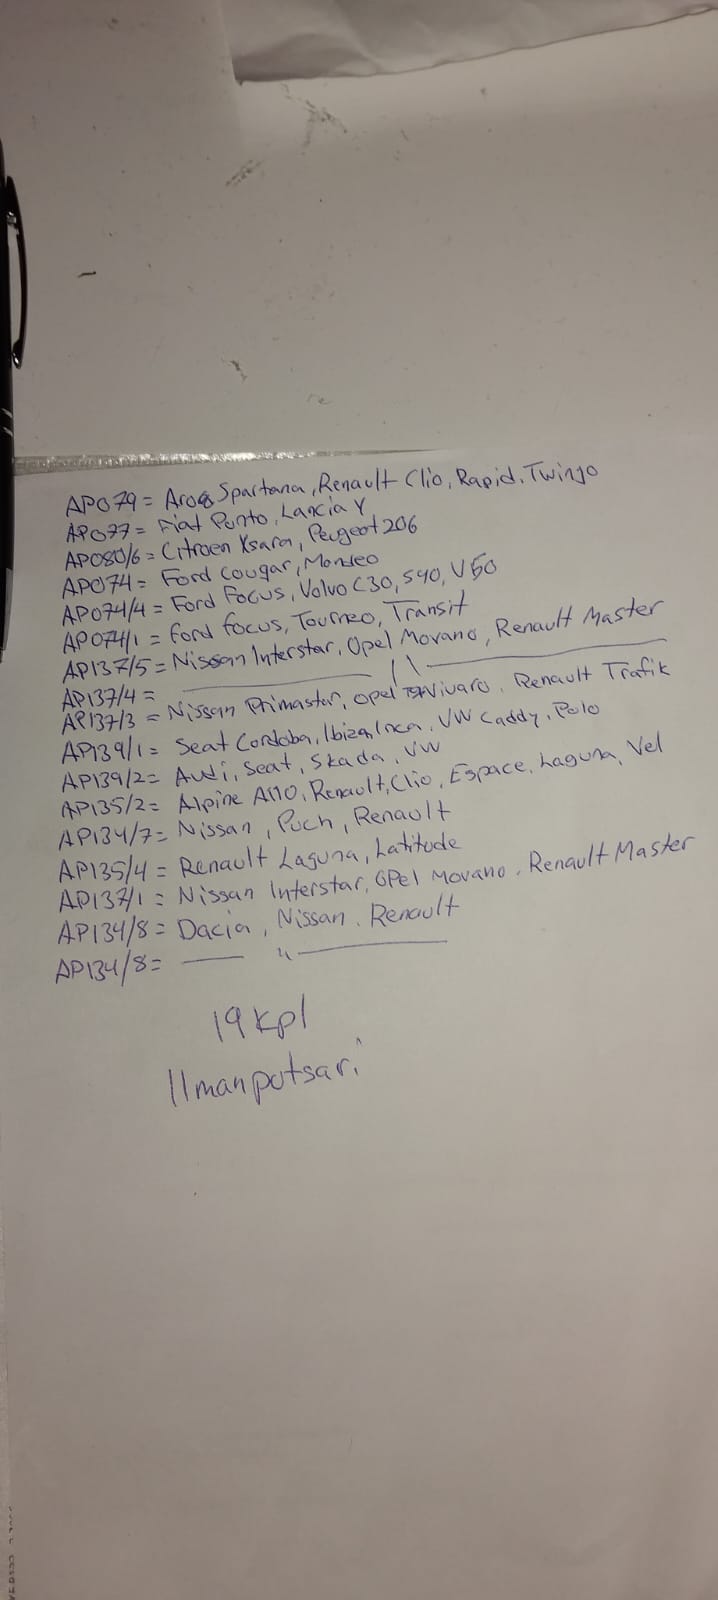 AP079 = Aro Spartana, Renault Clio, Rapid, Twingo
AP077 = Fiat Punto, Lancia Y
AP080/6 = Citroen Xsara, Peugeot 206
AP074 = Ford Cougar, Mondeo
AP074/4 = Ford Focus, Volvo C30, S40, V50
AP074/1 = Ford focus, Tourneo, Transit
AP137/5 = Nissan Interstar, Opel Movano, Renault Master
AP137/4 = —— \\ ——
AP137/3 = Nissan Primastar, Opel Vivaro, Renault Trafik
AP139/1 = Seat Cordoba, Ibiza, Inca, VW Caddy, Polo
AP139/2 = Audi, Seat, Skada, VW
AP135/2 = Alpine A110, Renault, Clio, Espace, Laguna, Vel
AP134/7 = Nissan, Puch, Renault
AP135/4 = Renault Laguna, Latitude
AP137/1 = Nissan Interstar, Opel Movano, Renault Master
AP134/8 = Dacia, Nissan, Renault
AP134/8 = —— \\ ——
19 kpl
Ilmanputsari